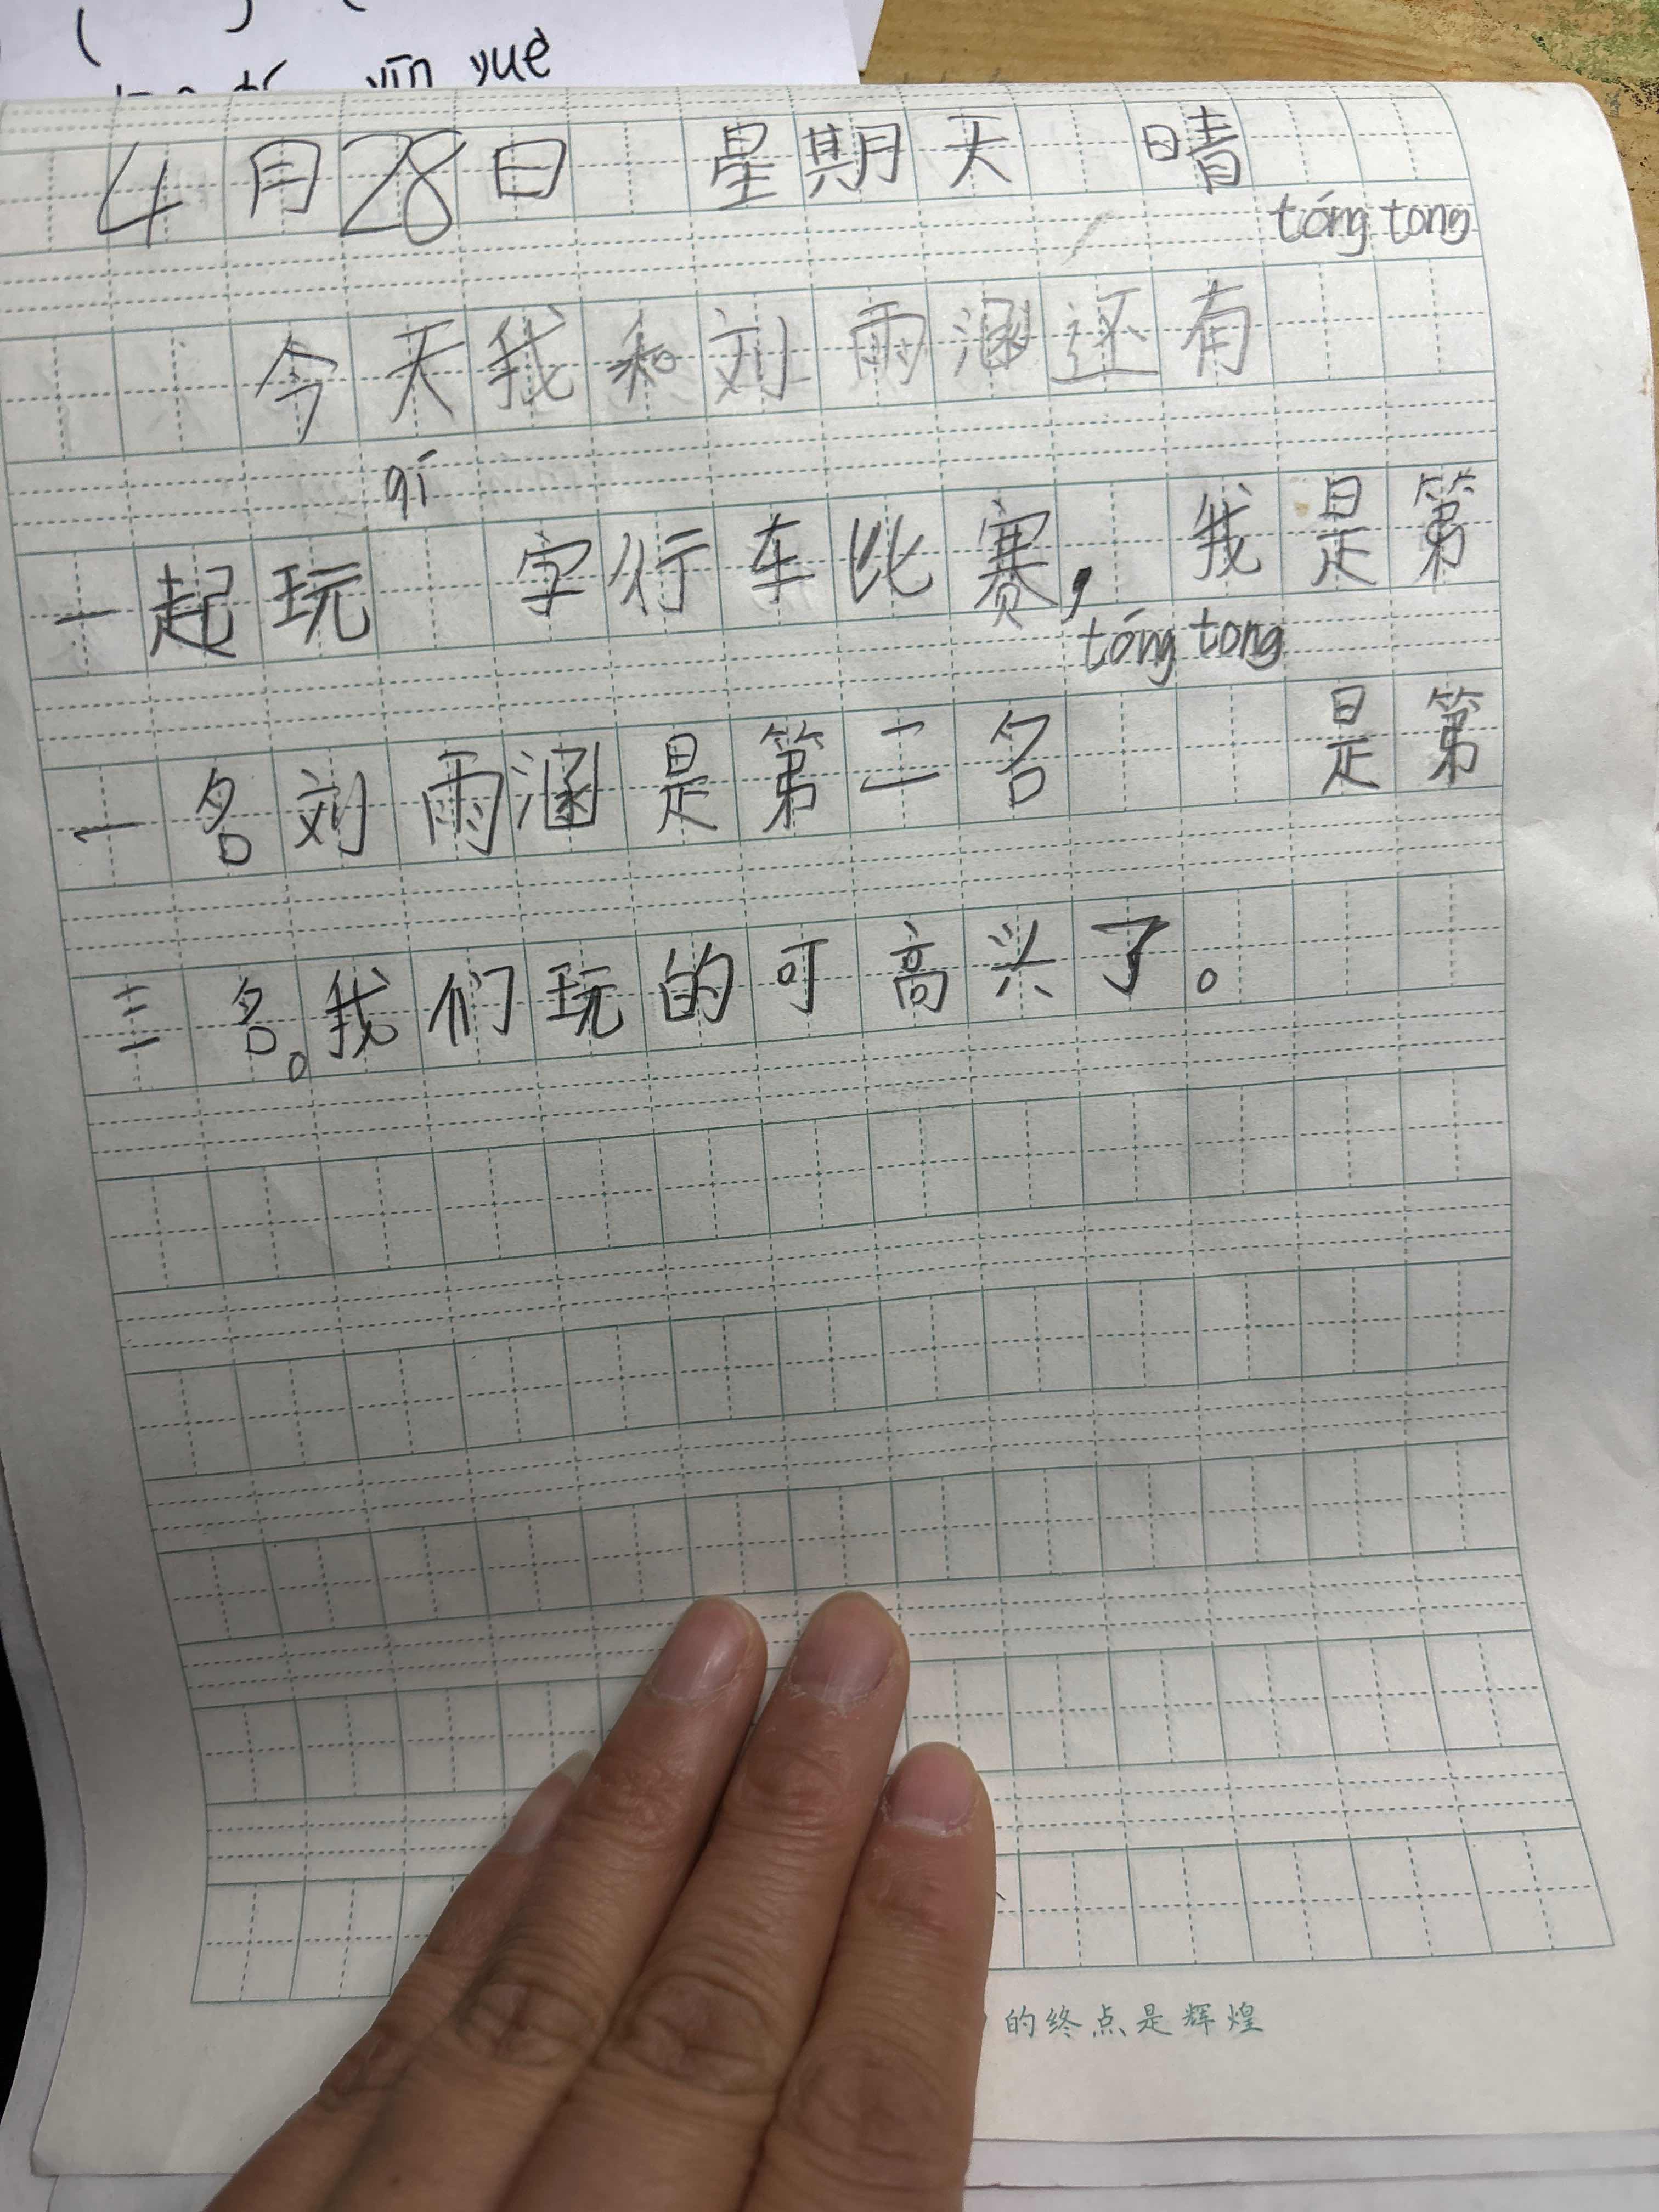 yīn yuè
4月28日 星期天 晴
tóng tong
今天我和刘雨涵还有
qí
一起玩 字行车比赛，我是第
tóng tong
一名刘雨涵是第二名 是第
三名。我们玩的可高兴了。
的终点是辉煌